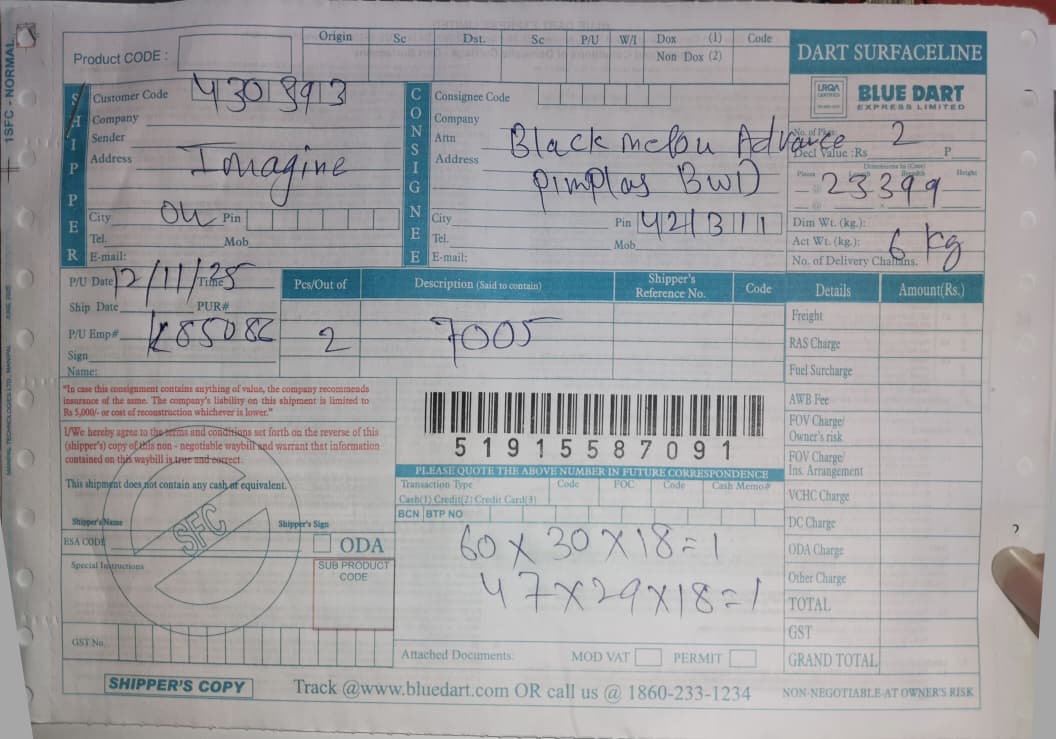 1SFC - NORMAL
MANIPAL TECHNOLOGIES LTD., MANIPAL JUNE 2025
Product CODE :
Origin Sc Dst. Sc P/U W/I Dox (1) Code
Non Dox (2)
DART SURFACELINE
SHIPPER
Customer Code 4308913
Company
Sender
Address Imagine
City Pin
Tel. Mob
E-mail:
CONSIGNEE
Consignee Code
Company
Attn Black melou Advance
Address pimplas BWD
City Pin 421311
Tel. Mob
E-mail:
LRQA
CERTIFIED
BLUE DART
EXPRESS LIMITED
No. of Pkgs 2
Decl Value :Rs P
Dimensions in (Cms)
Pieces Length Breadth Height
23399
Dim Wt. (kg.):
Act Wt. (kg.): 6 kg
No. of Delivery Challans.
P/U Date 12/11/25 Time
Ship Date PUR#
P/U Emp# K85086
Sign
Name:
Pcs/Out of Description (Said to contain) Shipper's Reference No. Code
2 7005
Details Amount(Rs.)
Freight
RAS Charge
Fuel Surcharge
AWB Fee
FOV Charge/
Owner's risk
FOV Charge/
Ins. Arrangement
VCHC Charge
DC Charge
ODA Charge
Other Charge
TOTAL
GST
GRAND TOTAL
"In case this consignment contains anything of value, the company recommends
insurance of the same. The company's liability on this shipment is limited to
Rs 5,000/- or cost of reconstruction whichever is lower."
I/We hereby agree to the terms and conditions set forth on the reverse of this
(shipper's) copy of this non - negotiable waybill and warrant that information
contained on this waybill is true and correct.
This shipment does not contain any cash or equivalent.
SFC
Shipper's Name Shipper's Sign
ESA CODE ODA
Special Instructions SUB PRODUCT
CODE
GST No.
51915587091
PLEASE QUOTE THE ABOVE NUMBER IN FUTURE CORRESPONDENCE
Transaction Type Code FOC Code Cash Memo#
Cash(1) Credit(2) Credit Card(3)
BCN BTP NO
60 X 30 X 18 = 1
47 X 29 X 18 = 1
Attached Documents: MOD VAT PERMIT
SHIPPER'S COPY
Track @www.bluedart.com OR call us @ 1860-233-1234
NON-NEGOTIABLE-AT OWNER'S RISK